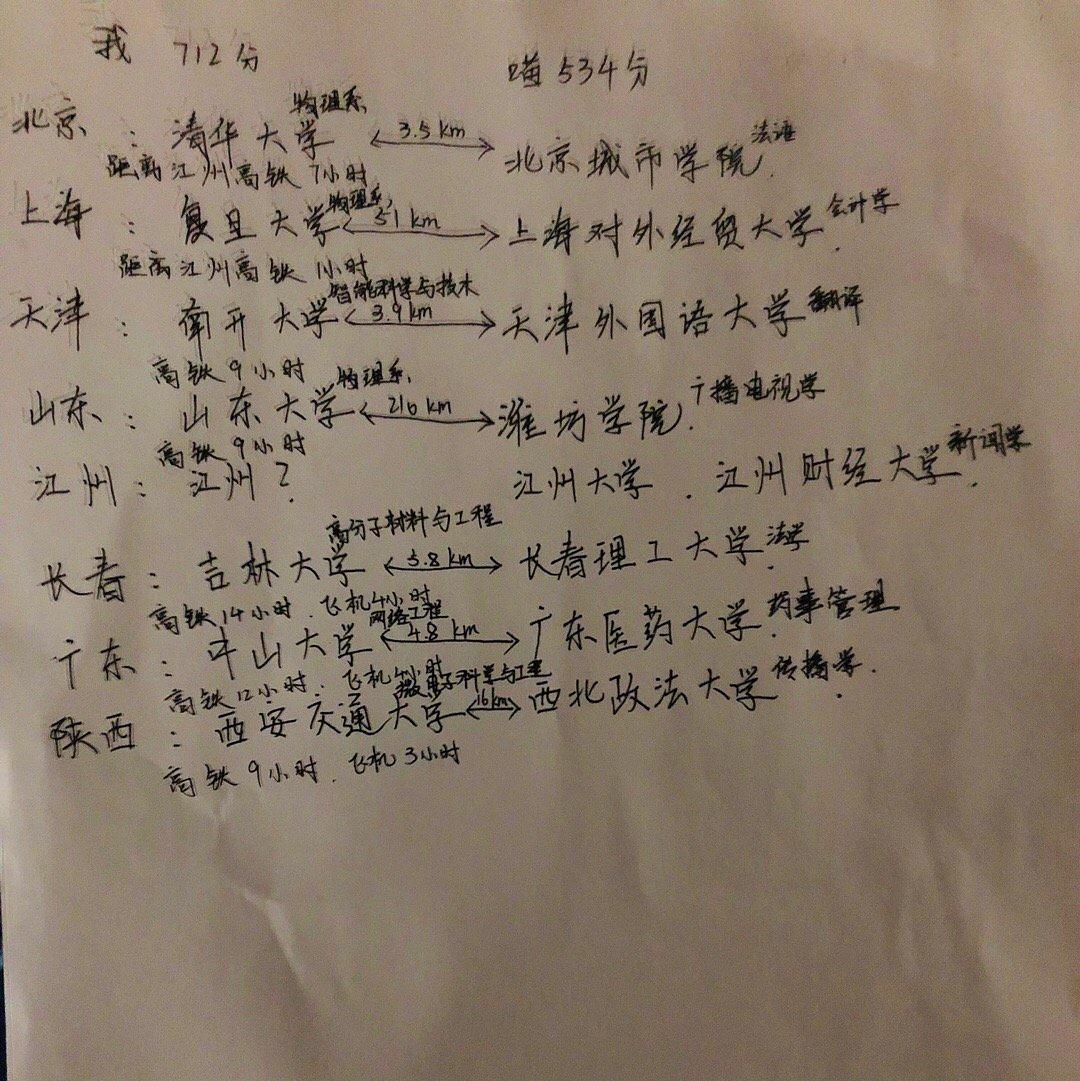 我 712分 喵 534分
北京：清华大学 物理系 3.5 km 北京城市学院 法语
距离江州高铁 7小时
上海：复旦大学 物理系 51 km 上海对外经贸大学 会计学
距离江州高铁 1小时
天津：南开大学 智能科学与技术 3.9 km 天津外国语大学 翻译
高铁 9小时
山东：山东大学 物理系 216 km 潍坊学院 广播电视学
高铁 9小时
江州：江州？ 江州大学．江州财经大学 新闻学
长春：吉林大学 高分子材料与工程 5.8 km 长春理工大学 法学
高铁 14小时．飞机 4小时
广东：中山大学 网络工程 4.8 km 广东医药大学 药事管理
高铁 12小时．飞机 4小时
陕西：西安交通大学 微电子科学与工程 16 km 西北政法大学 传播学
高铁 9小时．飞机 3小时